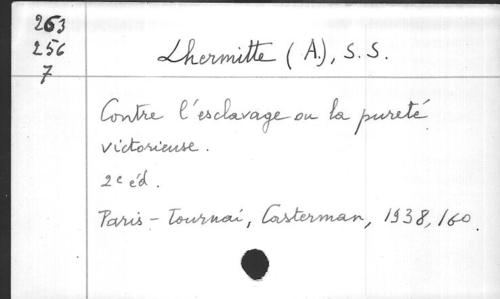 263
256
7
Lhermitte (A.), S.S.
Contre l'esclavage ou la pureté
victorieuse.
2e éd.
Paris - Tournai, Casterman, 1938, 160.